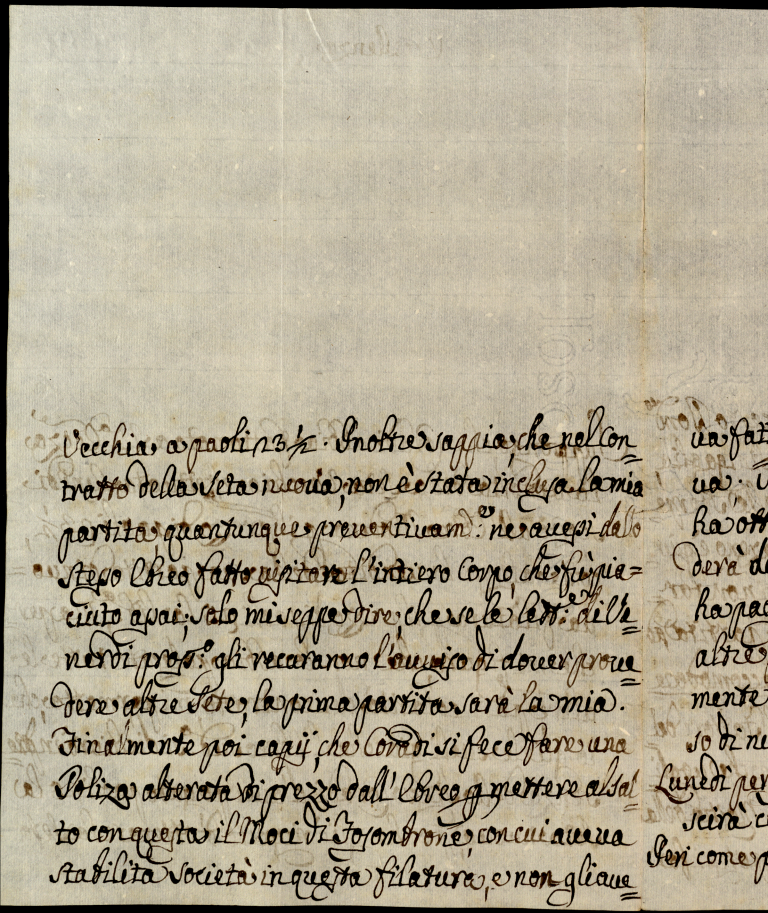 Vecchia, a paoli 23½. Inoltre sappia, che nel Con=
tratto della seta nuova, non è stata inclusa la mia
partita, quantunque preventivam.e ne avessi dallo
stesso Ebreo fatto visitare l'intiero Corpo, che fù pia=
ciuto assai; solo mi seppe dire, che se le lett.e di Ve=
nerdì pross.o gli recaranno l'avviso di dover prove=
dere altre Sete, la prima partita sarà la mia.
Finalmente poi capij, che Coradi si fece fare una
Poliza alterata di prezzo dall'Ebreo p mettere al sal=
to con questa il Moci di Fosombrone, con cui aveva
stabilita società in questa filatura, e non gli ave=
va fatt
va.
ha ott
derà d
ha pag
altre
mente
so di ne
Lunedì per
scirà c
Ieri come p